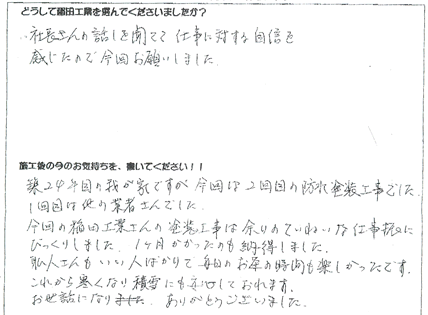 どうして稲田工業を選んでくださいましたか?
社長さんの話しを聞てて 仕事に対する自信を
感じたので今回お願いしました
施工後の今のお気持ちを、書いてください!!
築24年目の我が家ですが今回は2回目の防水塗装工事でした。
1回目は他の業者さんでした。
今回の稲田工業さんの塗装工事は余りのていねいな仕事振りに
びっくりしました。1ヶ月かかったのも納得しました。
職人さんもいい人ばかりで毎日のお茶の時間も楽しかったです。
これから寒くなり積雪にも安心しております。
お世話になりました。ありがとうございました。